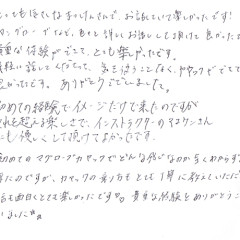 とってもほがらかなインストラクターさんで、お話していて楽しかったです!
マングローブでなど、色々と詳しくお話しして頂けて良かった
貴重な体験ができて、とても楽しかったです。
気軽に話してくださって、気まずくなることなく、カヤックができて
良かったです。ありがとうございました。
初めての経験でイメージだけで来たのですが
それを超える楽しさで、インストラクターのヤマケンさん
にも優しくして頂けてよかったです。
初めてのマングローブカヤックでどんな感じなのか全くわからず
来たのですが、カヤックの乗り方もとても丁寧に教えていただ
話も面白くてとても楽しかったです。貴重な体験をありがとうご
いました